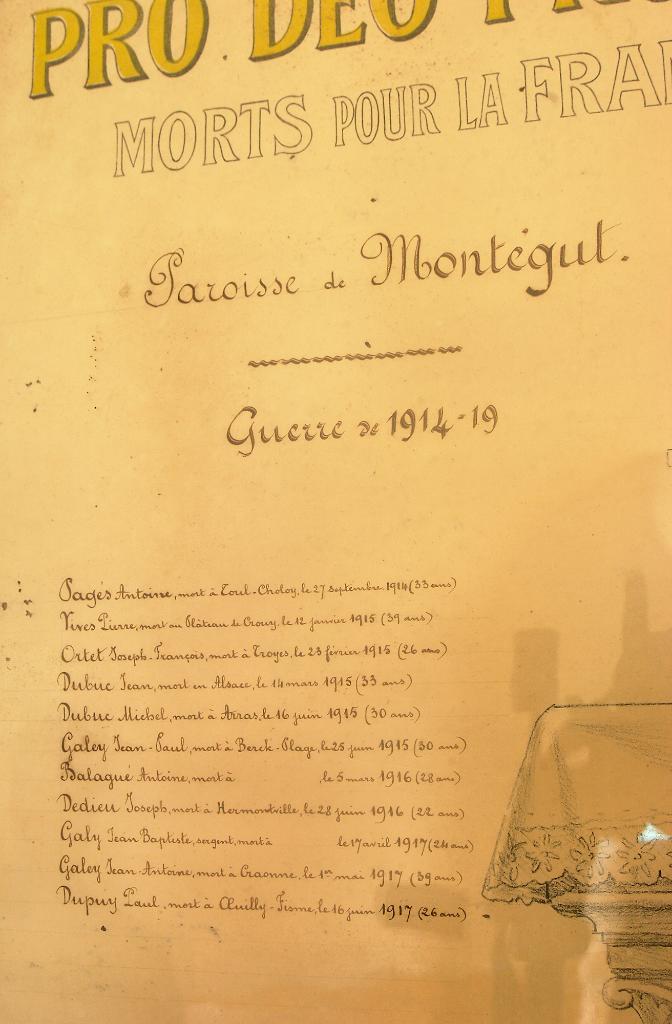 PRO DEO
MORTS POUR LA FRAN
Paroisse de Montégut.
Guerre de 1914-19
Pagès Antoine, mort à Toul-Choloy, le 27 septembre 1914 (33 ans)
Vives Pierre, mort au Plateau de Crouy, le 12 janvier 1915 (39 ans)
Ortet Joseph-François, mort à Troyes, le 23 février 1915 (26 ans)
Dubuc Jean, mort en Alsace, le 14 mars 1915 (33 ans)
Dubuc Michel, mort à Arras, le 16 juin 1915 (30 ans)
Galey Jean-Paul, mort à Berck-Plage, le 25 juin 1915 (30 ans)
Balagué Antoine, mort à , le 5 mars 1916 (28 ans)
Dedieu Joseph, mort à Hermonville, le 28 juin 1916 (22 ans)
Galy Jean Baptiste, sergent, mort à le 17 avril 1917 (24 ans)
Galey Jean-Antoine, mort à Craonne, le 1er mai 1917 (39 ans)
Dupuy Paul, mort à Œuilly-Fisme, le 16 juin 1917 (26 ans)